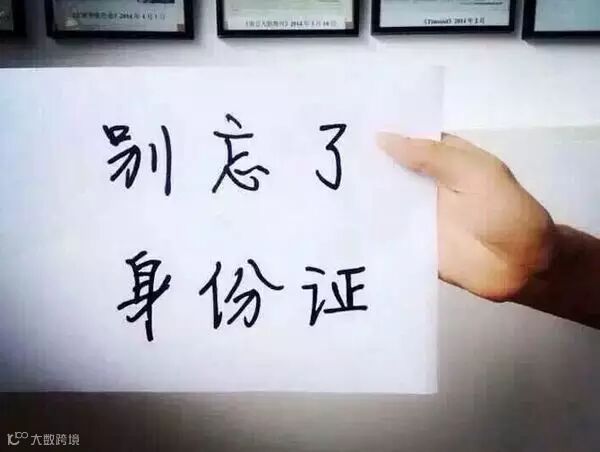 2014年4月1日
2014年3月10日
2014年3月
别忘了
身份证
大数跨境